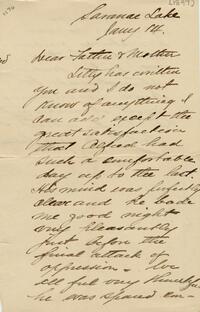 Saranac Lake
Jany 14.
Dear Father & Mother
Litty has written
you and I do not
know of anything I
can add except the
great satisfaction
that Alfred had
such a comfortable
day up to the last.
His mind was perfectly
clear and he bade
me good night
very pleasantly
just before the
final attack of
oppression. We
all feel very thankful
he was spared em-